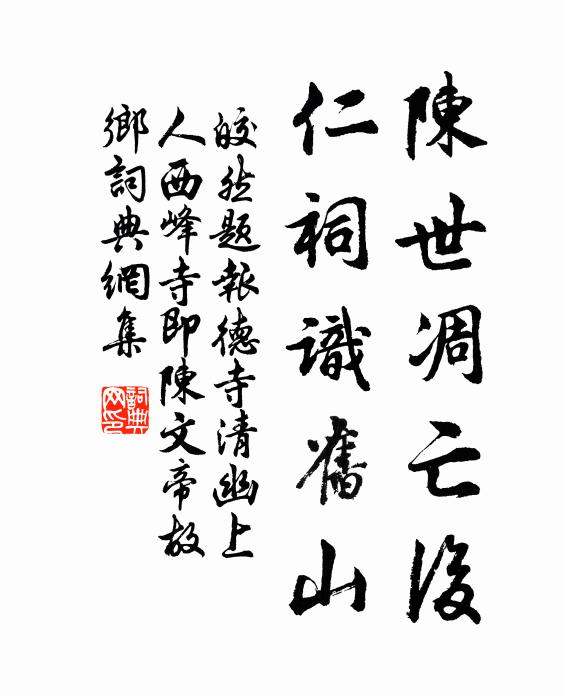 陳世凋亡後
仁祠識舊山
皎然題報德寺清幽上
人西峰寺即陳文帝故
鄉詞典網集
詞典網印